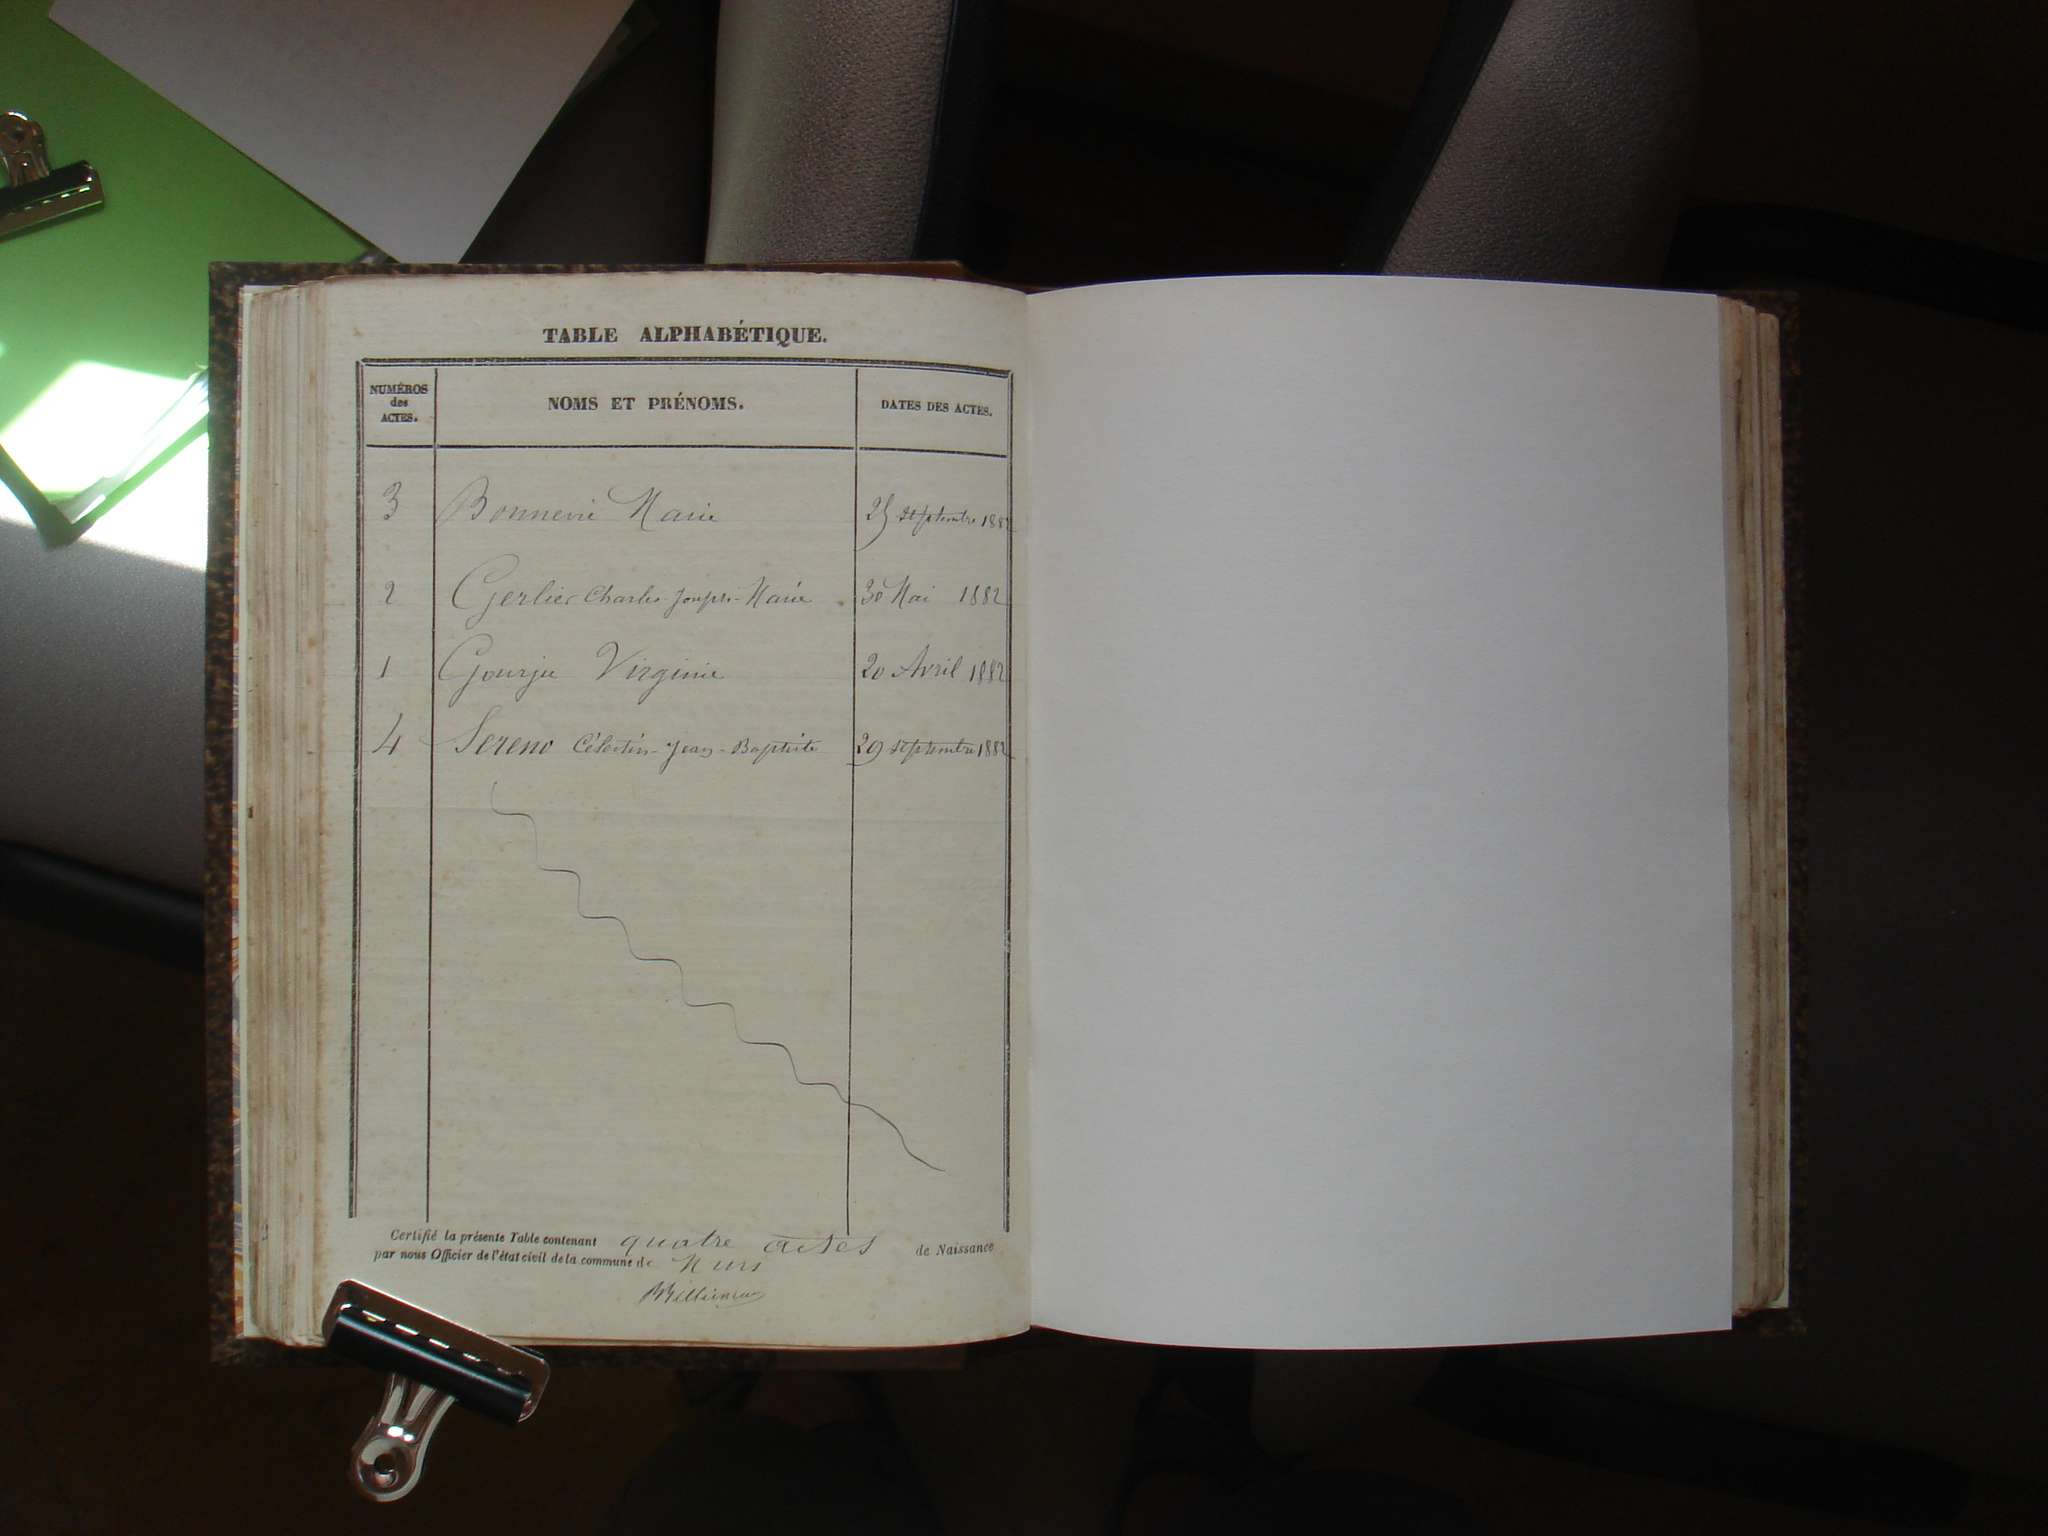 TABLE ALPHABÉTIQUE.
NUMÉROS des ACTES. NOMS ET PRÉNOMS. DATES DES ACTES.
3 Bonnevie Marie 25 septembre 1882
2 Gerlier Charles-Joseph-Marie 30 Mai 1882
1 Gourju Virginie 20 Avril 1882
4 Sereno Célestin-Jean-Baptiste 29 septembre 1882
Certifié la présente Table contenant quatre actes de Naissance
par nous Officier de l'état civil de la commune de Murs